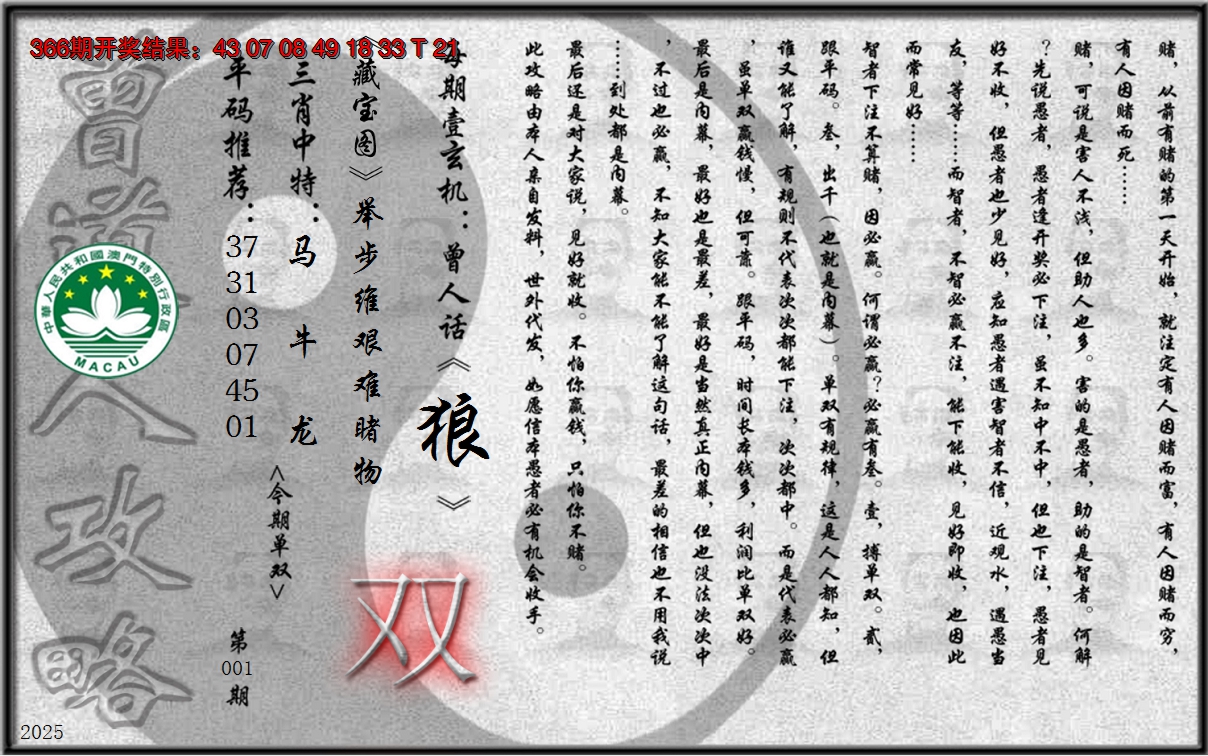 366期开奖结果：43 07 08 49 18 33 T 21
赌，从前有赌的第一天开始，就注定有人因赌而富，有人因赌而穷，
有人因赌而死……
赌，可说是害人不浅，但助人也多。害的是愚者，助的是智者。何解
？先说愚者，愚者逢开奖必下注，虽不知中不中，但也下注，愚者见
好不收，但愚者也少见好，应知愚者遇害智者不信，近观水，遇愚当
友，等等……而智者，不智必赢不注，能下能收，见好即收，也因此
而常见好……
智者下注不算赌，因必赢。何谓必赢？必赢有叁。壹，搏单双。贰，
跟平码。叁，出千（也就是内幕）。单双有规律，这是人人都知，但
谁又能了解，有规则不代表次次都能下注，次次都中。而是代表必赢
，虽单双赢钱慢，但可靠。跟平码，时间长本钱多，利润比单双好。
最后是内幕，最好也是最差，最好是当然真正内幕，但也没法次次中
，不过也必赢，不知大家能不能了解这句话，最差的相信也不用我说
……到处都是内幕。
最后还是对大家说，见好就收。不怕你赢钱，只怕你不赌。
此攻略由本人亲自发料，世外代发，如愿信本愚者必有机会收手。
每期壹玄机：曾人话《狼》
《藏宝图》举步维艰难睹物
双
三肖中特：马 牛 龙
<今期单双>
平码推荐：37 31 03 07 45 01
第001期
曾道人攻略
中華人民共和國澳門特別行政區
MACAU
2025